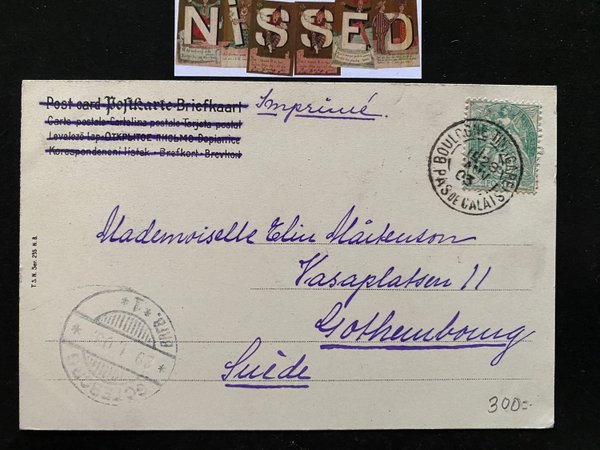 NiSSED
Post card-Postkarte-Briefkaart
Carte postale Cartolina postale Tarjeta postal
Levelező lap-ОТКРЫТОЕ ПИСЬМО-Dopisnice
Korespondenční lístek-Brefkort-Brevkort
Imprimé.
BOULOGNE-SUR-MER
03
PAS DE CALAIS
Mademoiselle Elin Mårtenson
Vasaplatsen 11
Gothembourg
Suède
T.S.N. Ser. 295 N. 8.
GÖTEBORG
1 BRTB.
300:-